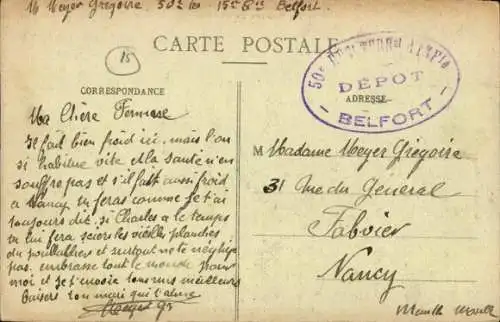 M Meyer Gregoire 50e 15e Bie Belfort
15
CARTE POSTALE
50e
DÉPÔT
- BELFORT -
CORRESPONDANCE
ADRESSE
Ma Chère Femme
Il fait bien froid ici, mais l'on
si habitue vite et la santé n'en
souffre pas et s'il fait aussi froid
a Nancy tu feras comme je t'ai
toujours dit, si Charles a le temps
tu lui fera scier les vieilles planches
du poullallier et surtout ne te néglige
pas. embrasse tout le monde pour
moi et je t'envoie tous mes meilleurs
Baisers ton mari qui t'aime
Meyer Gr
M Madame Meyer Gregoire
31 Rue du General
Fabvier
Nancy
Meurthe